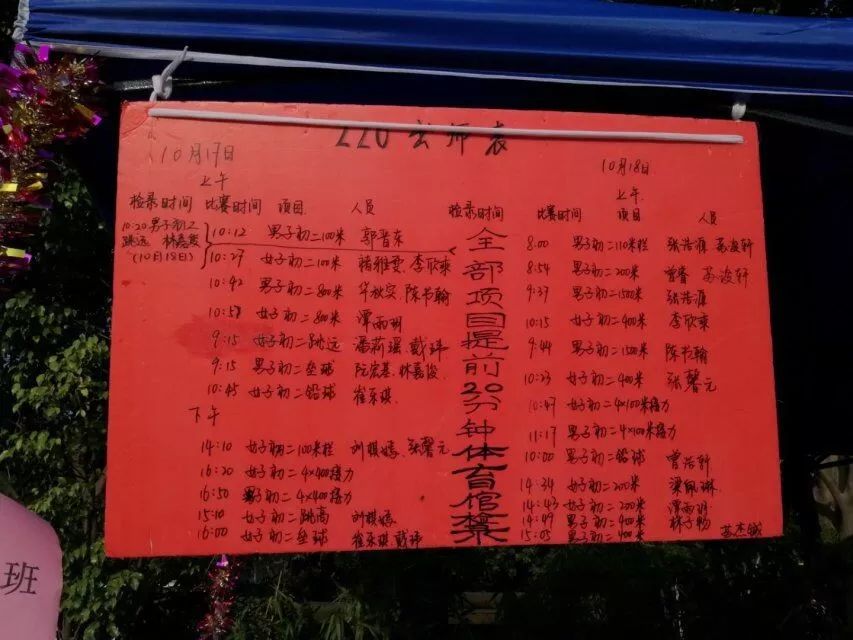 220出师表
10月17日
上午
检录时间 比赛时间 项目 人员
10:20男子初二
跳远 林嘉俊
(10月18日)
10:12 男子初二100米 郭晋东
10:27 女子初二100米 褚雅雯 李欣来
10:42 男子初二800米 华秋实、陈书翰
10:57 女子初二800米 谭雨玥
9:15 女子初二跳远 潘莉瑶、戴玮
9:15 男子初二垒球 阮宏基、林嘉俊
10:45 女子初二铅球 崔乐琪
下午
14:10 女子初二100米栏 刘祺嫣、张馨元
16:20 女子初二4×400接力
16:50 男子初二4×400接力
15:10 女子初二跳高 刘祺嫣
16:00 女子初二垒球 崔乐琪 戴玮
全部项目提前20分钟体育馆禁
10月18日
上午
检录时间 比赛时间 项目 人员
8:00 男子初二110米栏 张浩源 苏浚轩
8:54 男子初二200米 曾睿 苏浚轩
9:37 男子初二1500米 张浩源
10:15 女子初二400米 李欣来
9:44 男子初二1500米 陈书翰
10:23 女子初二400米 张馨元
10:47 女子初二4×100米接力
11:17 男子初二4×100米接力
10:00 男子初二铅球 曾浩轩
14:34 女子初二200米 梁佩琳
14:43 女子初二200米 谭雨玥
14:49 男子初二400米 林子畅
15:05 男子初二400米 苏杰铖
班